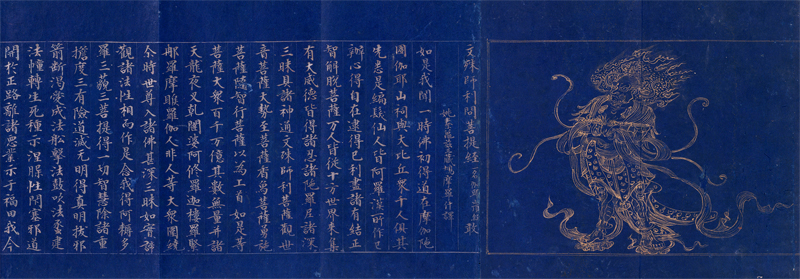 文殊師利問菩提經 一名伽耶山頂經
姚秦三藏鳩摩羅什譯
如是我聞一時佛初得道在摩伽陁
國伽耶山祠與大比丘衆千人俱其
先悉是編髮仙人皆阿羅漢所作已
辦心得自在逮得已利盡諸有結正
智解脫菩薩万人皆從十方世界來集
有大威德皆得諸忍諸陁羅尼諸深
三昧具諸神通文殊師利菩薩觀世
音菩薩大勢至菩薩香象菩薩勇施
菩薩隨智行菩薩以為上首如是等
菩薩大衆百千万億其數無量并諸
天龍夜叉乹闥婆阿修羅迦樓羅緊
那羅摩睺羅伽人非人等大衆圍繞
尒時世尊入諸佛甚深三昧如實諦
觀諸法性相而作是念我得阿耨多
羅三藐三菩提得一切智慧除諸重
擔度三有險道滅无明得真明拔邪
箭斷渴愛成法船擊法鼓吹法蠡建
法幢轉生死種示涅槃性閇塞邪道
開於正路離諸惡業示于福田我今